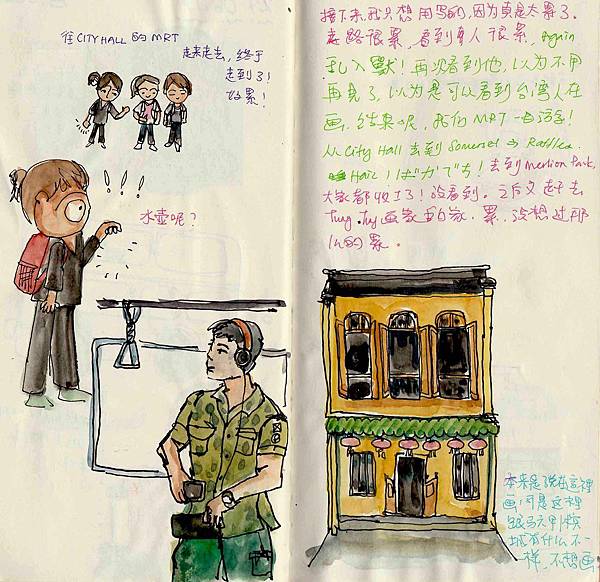 往CITY HALL 的 MRT
走来走去, 终于
走到了!
好累!
!!!
水壶呢?
接下来,我只想用写的,因为真是太累了.
走路很累, 看到有人很累, Again
乱入獸! 再次看到他,以为不用
再見了, 以为是可以看到台湾人在
画, 结果呢, 我们 MRT 一日游!
从 City Hall 去到 Somerset → Raffles.
去到 Merlion Park,
大家都收工了! 没看到. 之后又赶去
家. 累, 没想过那
么的累.
本来是说在這裡
画,可是这裡
跟马六甲,槟
城有什么不一
样, 不想画